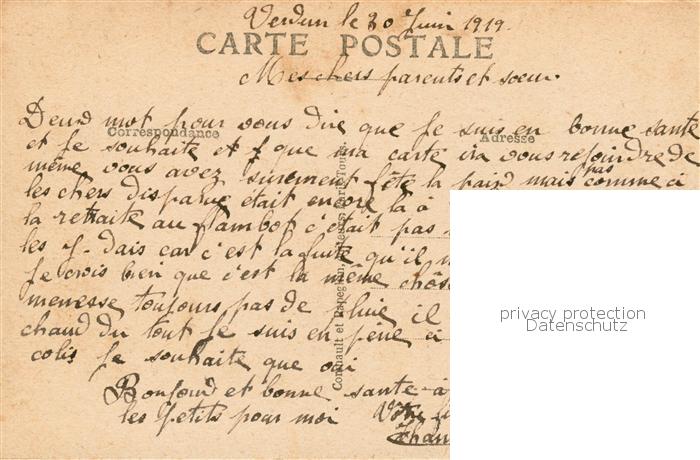 Verdun le 30 Juin 1919.
CARTE POSTALE
Mes chers parents et sœur.
Deux mot pour vous dire que je suis en bonne santé
Correspondance
Adresse
et je souhaite et que ma carte ira vous rejoindre de
même vous avez surement fêté la paix mais pas comme ci
les chers disparue était encore là à
la retraite au flambot c'était pas
les car c'est la fuite qu'il
Je crois bien que c'est la même chose
toujours pas de pluie il
chaud du tout je suis en peine
colis je souhaite que oui
Bonjour et bonne santé à
les petits pour moi Votre
privacy protection
Datenschutz